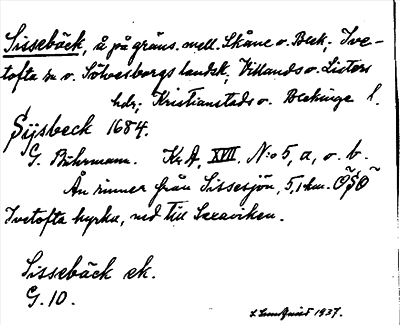 Sissebäck, å på gräns. mell. Skåne o. Blek; Ive-
tofta sn o. Sölvesborgs landsk; Villands o. Listers
hdr; Kristianstads o. Blekinge l.
Sijsbeck 1684.
G. Buhrmann. Kr. A, XVII, N:o 5, a, o. b.
Ån rinner från Sissesjön, 5,1 km. ÖSÖ
Ivetofta kyrka, ned till Sexaviken.
Sissebäck ek.
G. 10.
Lundquist 1937.